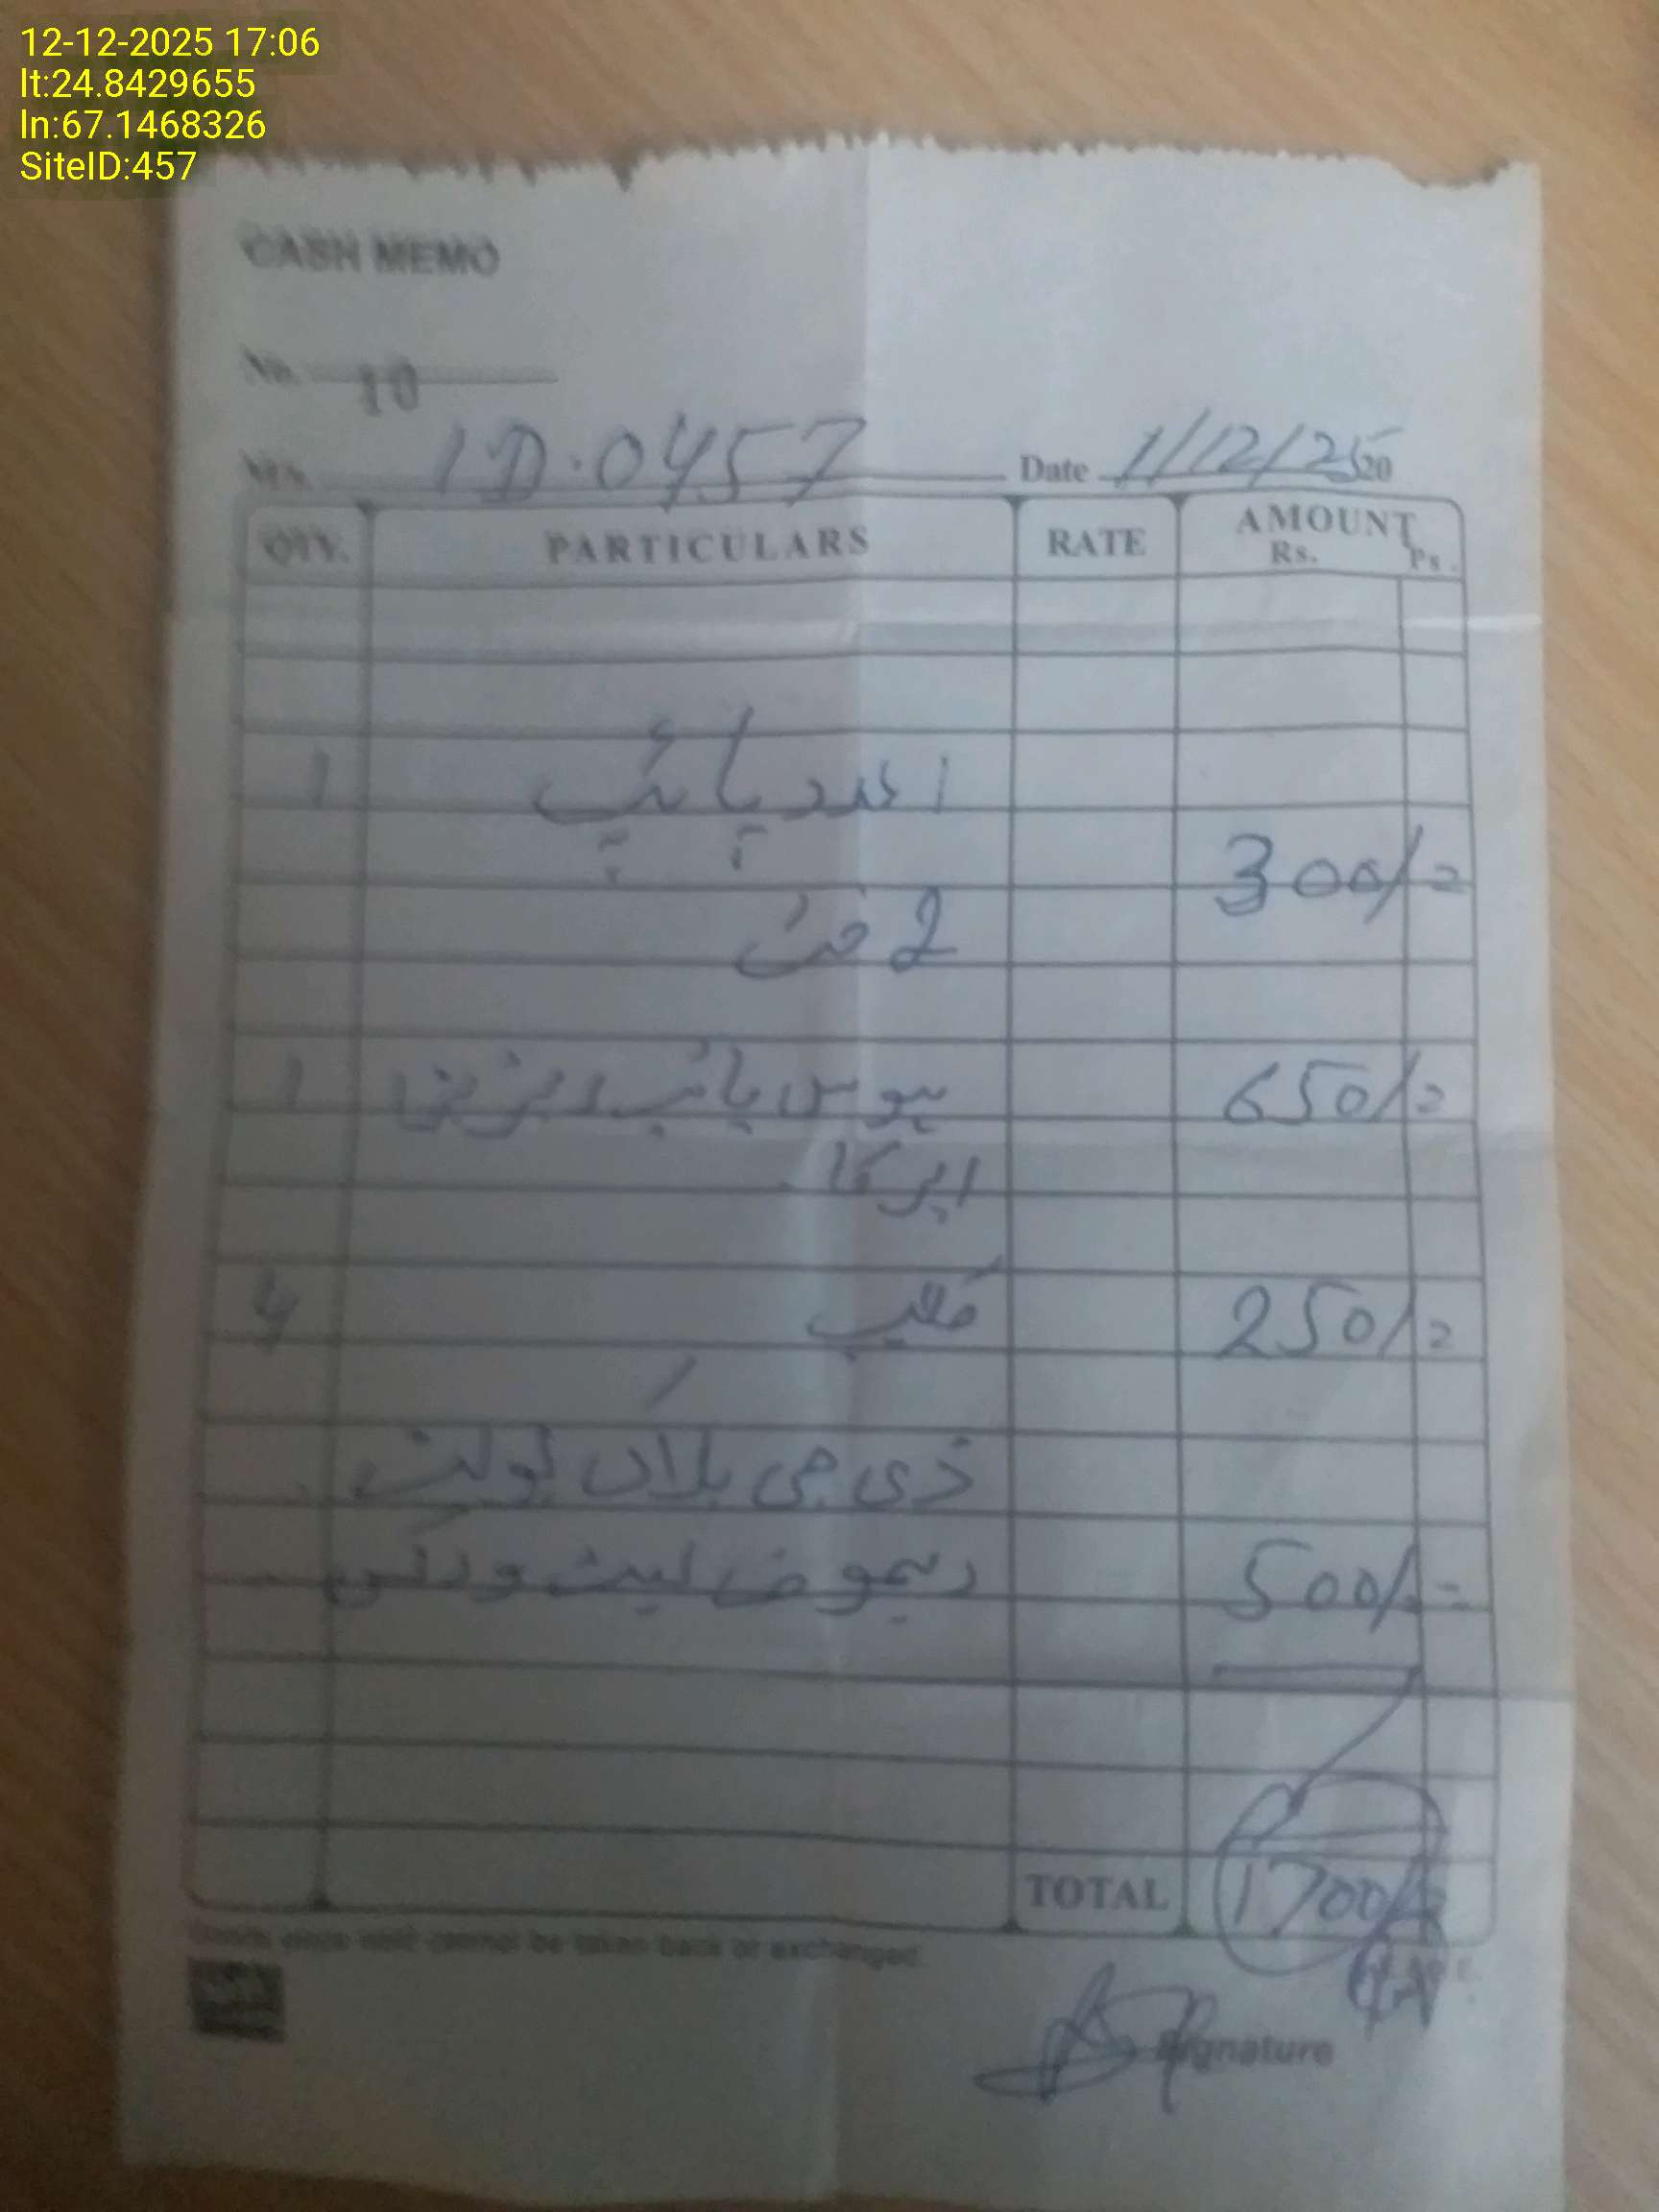 12-12-2025 17:06
lt:24.8429655
ln:67.1468326
SiteID:457
CASH MEMO
No. 10
M/s. ID.0457 Date 1/12/25 20
QTY. PARTICULARS RATE AMOUNT
Rs. Ps.
1 پائپ
300/=
2 فٹ
1 ہوس پائپ 650/=
ایر کا
4 کلپ 250/=
ڈی جی پلاٹ بولٹ
500/=
TOTAL 1700/=
Goods once sold cannot be taken back or exchanged.
E.&O.E.
Signature